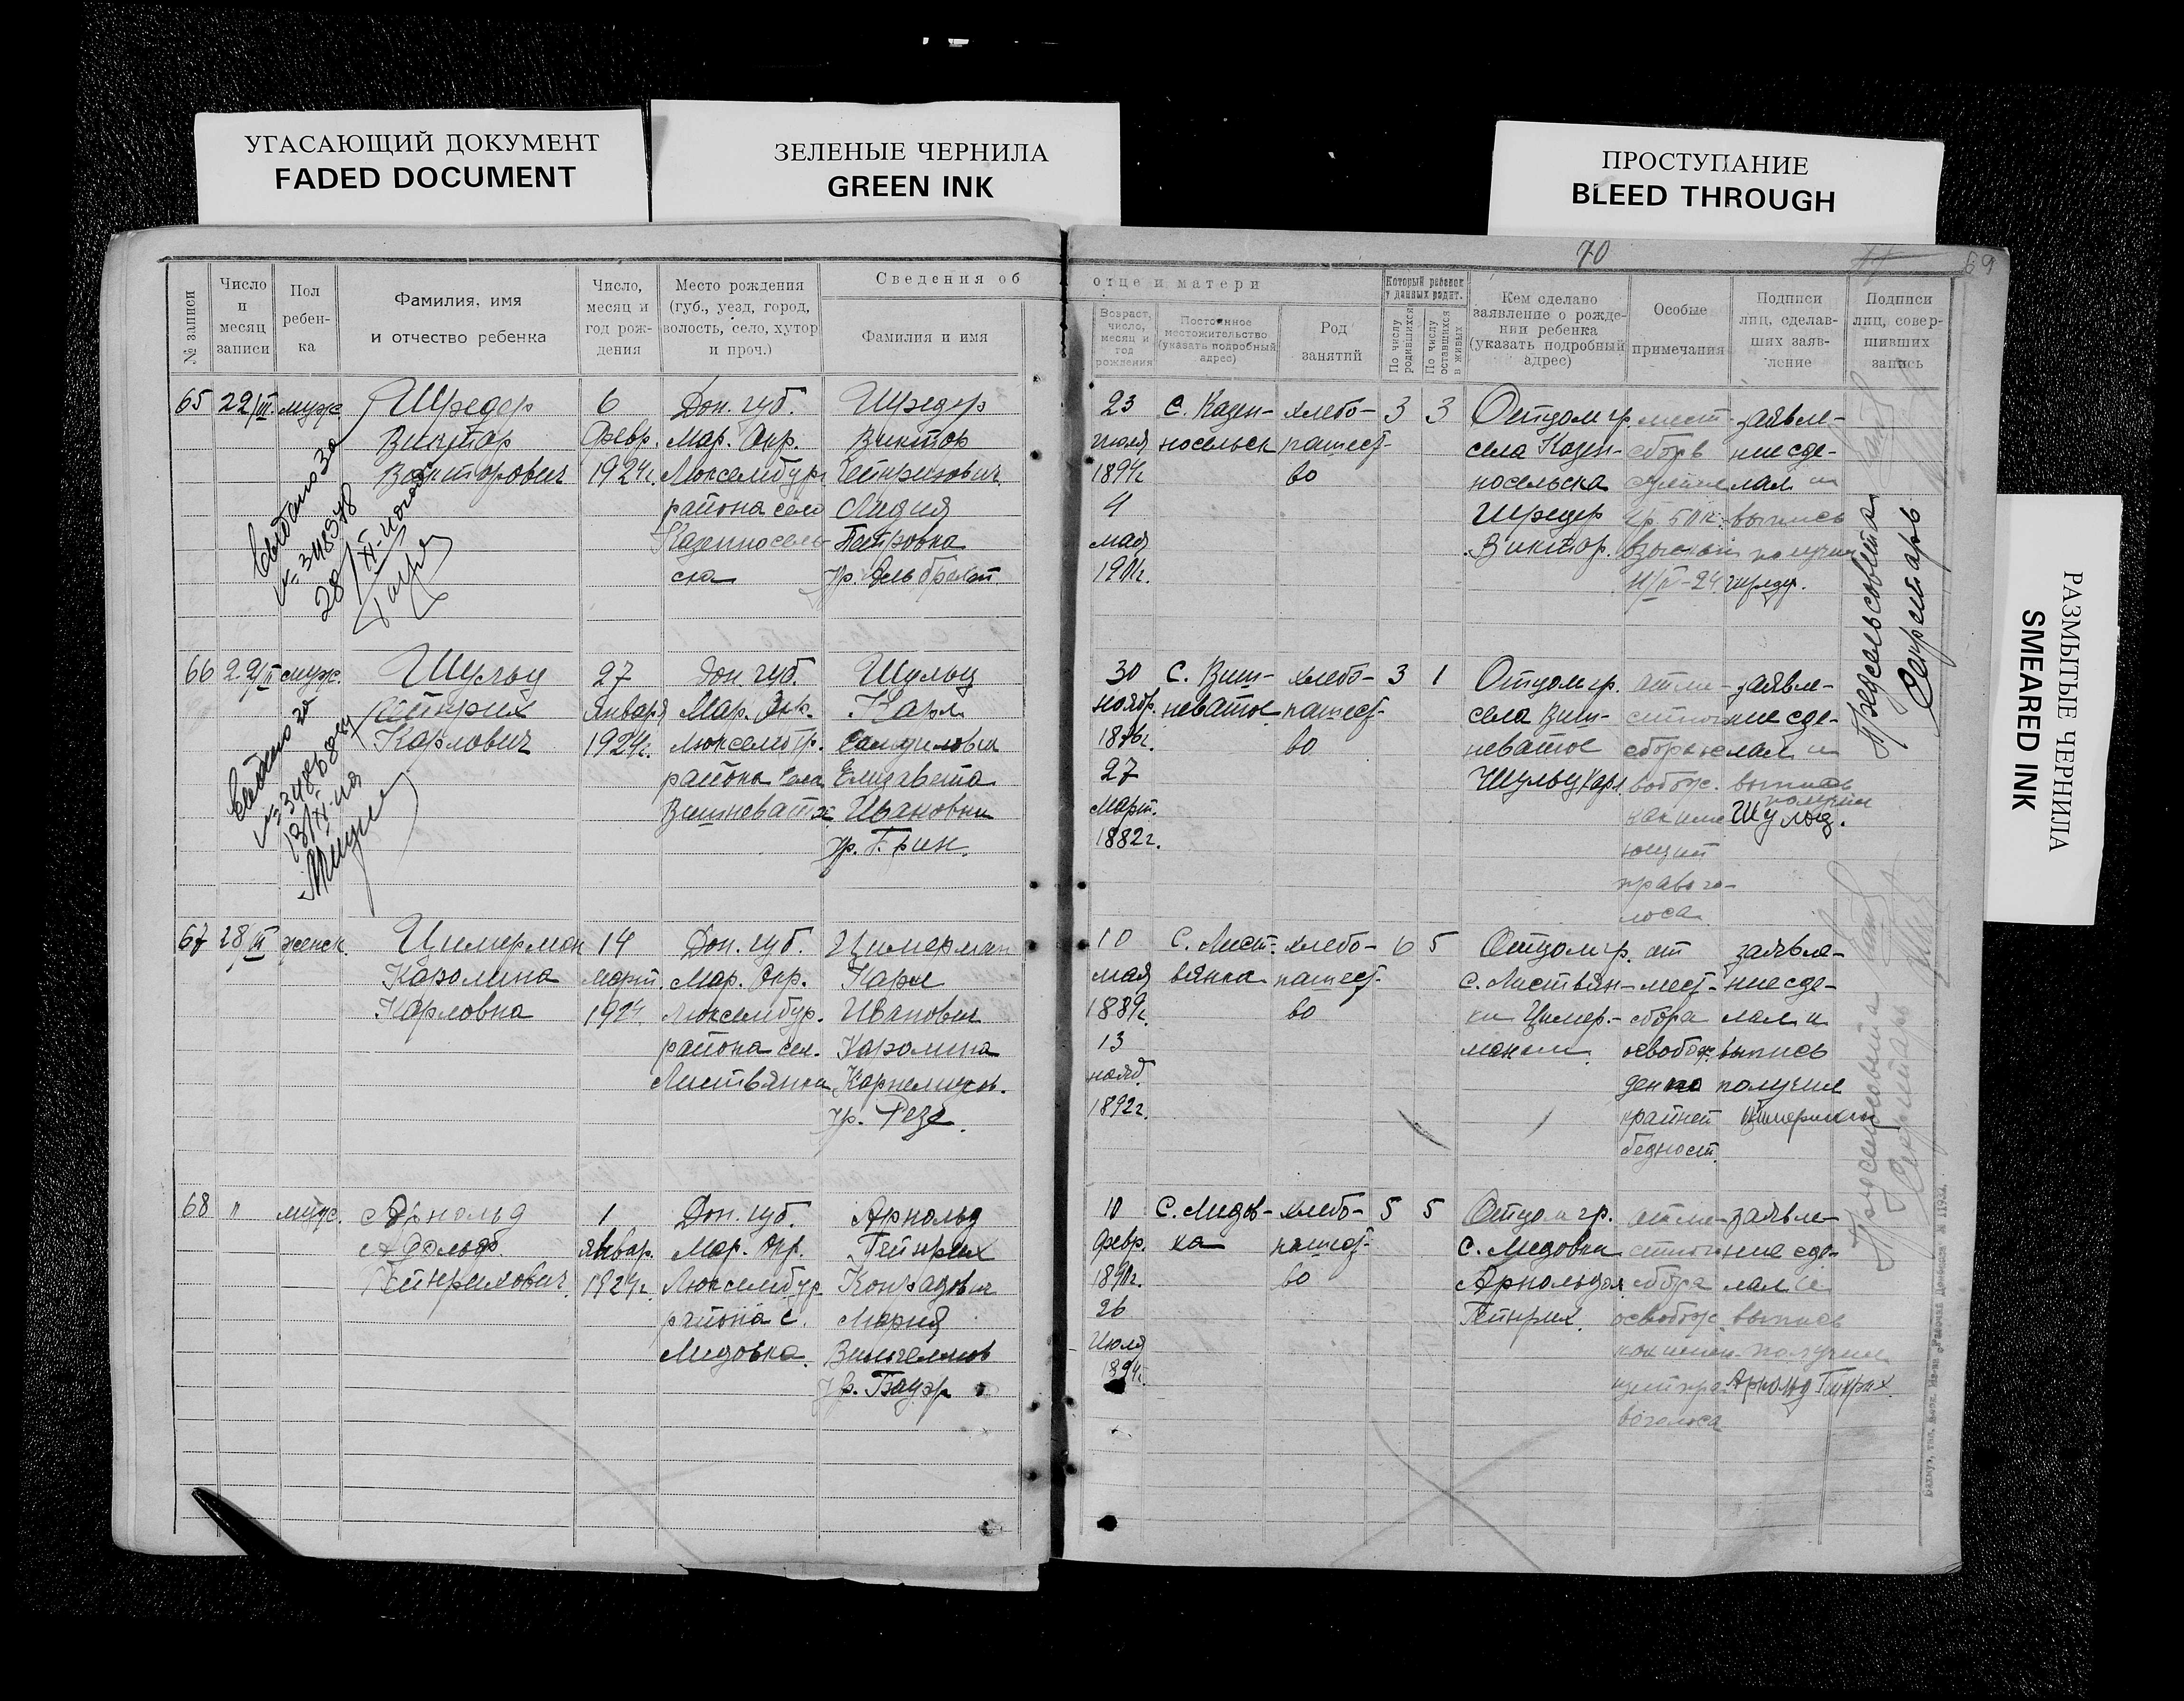 УГАСАЮЩИЙ ДОКУМЕНТ
FADED DOCUMENT
ЗЕЛЕНЫЕ ЧЕРНИЛА
GREEN INK
ПРОСТУПАНИЕ
BLEED THROUGH
РАЗМЫТЫЕ ЧЕРНИЛА
SMEARED INK
70
69
№ записи
Число
и
месяц
записи
Пол
ребен-
ка
Фамилия, имя
и отчество ребенка
Число,
месяц и
год рож-
дения
Место рождения
(губ., уезд, город,
волость, село, хутор
и проч.)
Сведения об
Фамилия и имя
отце и матери
Возраст,
число,
месяц и
год
рождения
Постоянное
местожительство
(указать подробный
адрес)
Род
занятий
Который ребенок
у данных родит.
По числу
родившихся
По числу
оставшихся
в живых
Кем сделано
заявление о рожде-
нии ребенка
(указать подробный
адрес)
Особые
примечания
Подписи
лиц, сделав-
ших заяв-
ление
Подписи
лиц, совер-
шивших
запись
65
22/III.
муж
Шредер
Виктор
Викторович
6
Февр.
1924г.
Дон. губ.
Мар. Окр.
Люксембург
района село
Казенносель-
ска
Шредер
Виктор
Гейнрихович
Лидия
Петровна
23
июля
1894г.
4
мая
1901г.
С. Казен-
носельск
хлебо-
пашест-
во
3
3
Отцом гр.
села Казен-
носельска
Шредер
Виктор.
мест
сбор в
гр. 50 к.
11/IV-24
заявле-
ние сде-
лал и
выпись
получил
Шредер.
Выдано за
№ 348978
28/XI-40 года
Предсельсовета
Секретарь
66
муж.
Шульц
Гейнрих
Карлович
27
января
1924г.
Дон. губ.
Мар. Окр.
района села
Вишневатое
Шульц
Карл
Елизавета
Ивановна
30
ноябр.
1876г.
27
март.
1882г.
С. Виш-
неватое
хлебо-
пашест-
во
3
1
Отцом гр.
села Виш-
неватое
Шульц Карл
сбора
как име-
ющий
право го-
лоса
заявле-
ние сде-
лал и
выпись
получил
Шульц.
Выдано за
67
28/III
женск.
Цимерман
Каролина
Карловна
14
март.
1924.
Дон. губ.
Мар. Окр.
Люксембур.
района сел.
Листвянка
Цимерман
Карл
Иванович
Каролина
10
мая
1889г.
13
нояб.
1892г.
С. Лист-
вянка
хлебо-
пашест-
во
6
5
Отцом гр.
с. Листвян-
ки Цимер-
маном
от
мест-
сбора
освобож-
ден по
крайней
бедност.
заявле-
ние сде-
лал и
выпись
получил
Цимерман
Предсельсовета
Секретарь
68
"
муж.
Арнольд
Адольф
Гейнрихович.
1
январ.
1924г.
Дон. губ.
Мар. Окр.
Люксембур
района с.
Медовка.
Арнольд
Гейнрих
Конрадович
Мария
гр. Бауэр
10
Февр.
26
Июля
1894г.
С. Медов-
ка
хлебо-
пашест-
во
5
5
Отцом гр.
С. Медовки
Арнольдом
Гейнрих.
сбора
освобож.
заявле-
ние сде-
лал и
выпись
получил
Арнольд Гейнрих.